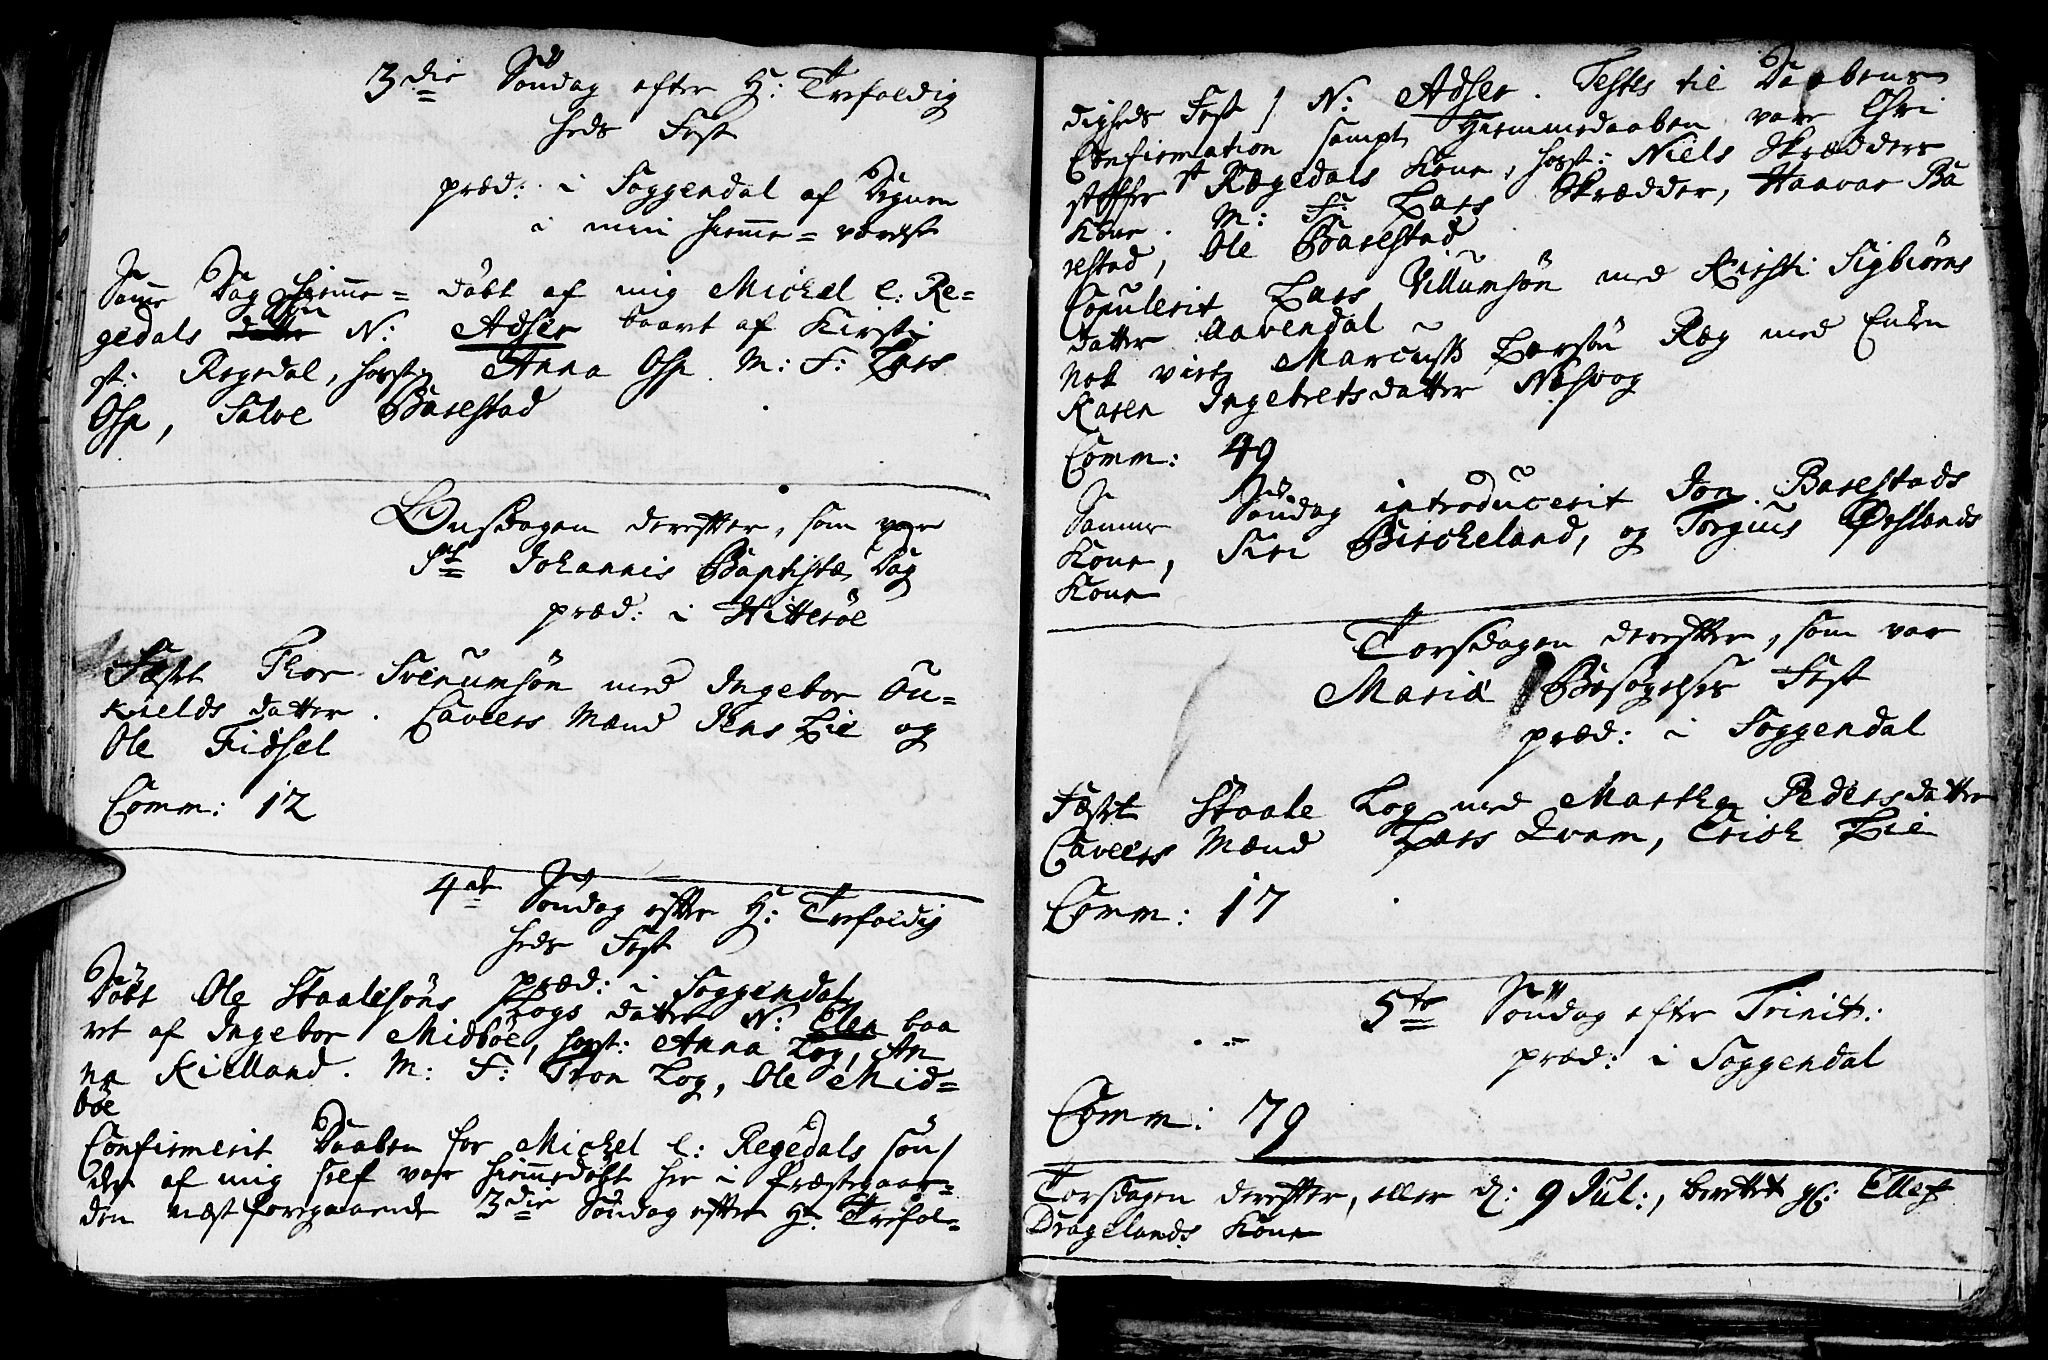 3die Søndag efter H: Trefoldig
heds Fest
præd: i Soggendal af Degnen
i min hiemme=værelse
Same Dag hiemme= döbt af mig Michel l: Re=
gedals datter Sön N: Adser baart af Kirsti
st: Regedal, hosst: Anna Osp. M: F: Lars
Osp, Salve Barestad
Onsdagen derefter, som var
St Johannis Baptistæ Dag
præd: i Hitterøe
Fæstt Thor Svenumsön med Ingebor Gu=
kields datter. Caveers Mænd Jens Lie og
Ole Fidsel
Comm: 12
4de Søndag efter H: Trefoldig
heds Fest
præd: i Soggendal
Döbt Ole Staalesöns Logs datter N: Elen baa
ret af Ingebor Midböe, hosst: Anna Log, An
na Kielland. M: F: Tron Log, Ole Mid=
böe
Confirmerit Daaben for Michel l: Regedals sön /
der af mig self var hiemmedöbt her i Præstegaar=
den næst foregaaende 3die Søndag efter H: Trefol=
digheds Fest / N: Adser. Testes til Daabens
Confirmation sampt Hiemmedaaben vare Chri
stoffer st Rægedals Kone, hosst: Niels Skrædders
Kone. M: F: Lars Skrædder, Haavar Ba
restad, Ole Barestad
Copulerit Lars Villumsön med Kirsti Sigbiörns
datter Aavendal
nok viet Marcus Larsön Ræg med Enken
Karen Ingebretsdatter Nesvog
Comm: 49
Samme Søndag introducerit Jon Barestads
Kone, Siri Birckeland, og Torgius Ørslands
Kone
Torsdagen derefter, som var
Mariæ Besøgelses Fest
præd: i Soggendal
Fæstt Staale Log med Martha Pedersdatter
Caveers Mænd Lars Qvam, Erich Lie
Comm: 17
5te Søndag efter Trinit:
præd: i Soggendal
Comm: 79
Torsdagen derefter, eller d: 9 Jul:, berettet gl: Ellef
Dragelands Kone